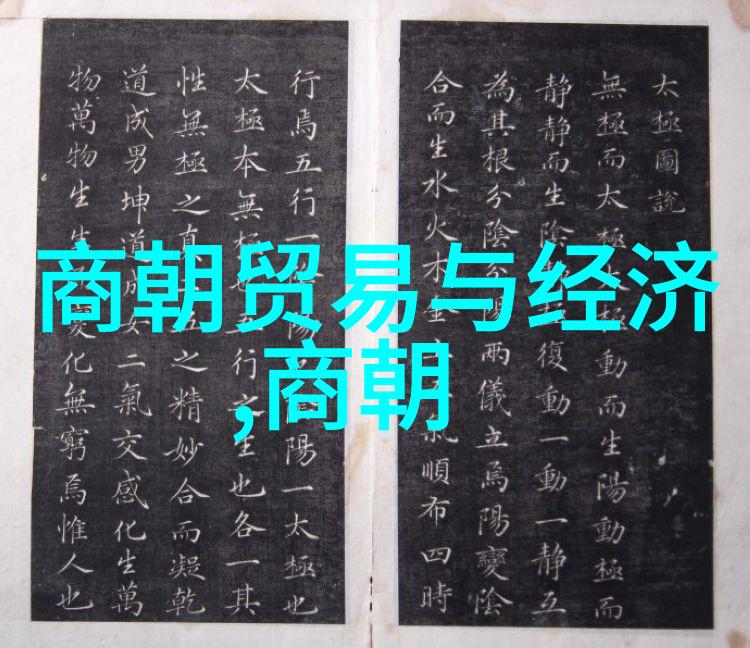 太極圖說
無極而太極太極動而生陽動極而
静静而生陰復動一動一静互
為其根分陰分陽兩儀立焉陽變陰
合而生水火木金氣順布四時
行焉五行一陰陽陰陽一太極也
太極本無極也五行之生也各一其
性無極之真二五之精妙合而凝乾
道成男坤道成女二氣交感化生萬
物萬物生生變化無窮焉惟人也
商朝贸易与经济
,商朝